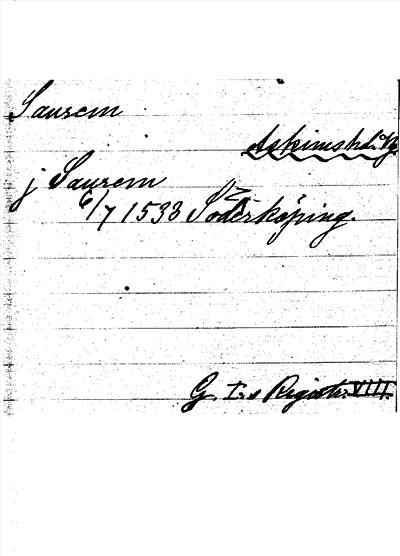 Saurem
Askims hd. Vg.
j Saurem
6/7 1533 Söderköping.
G. I:s Registr. VIII.